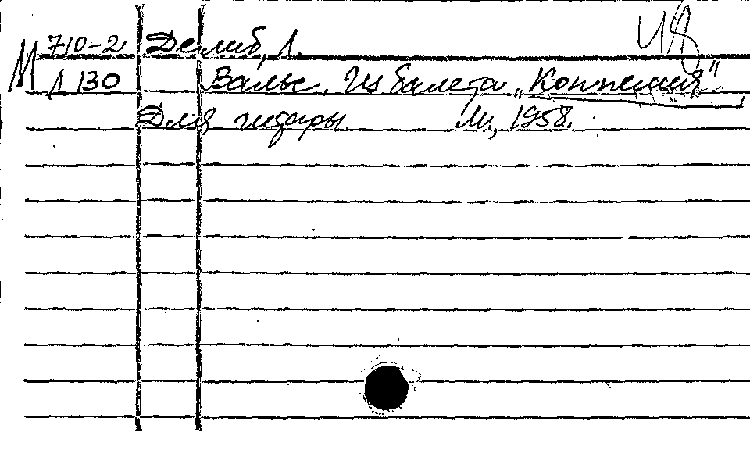 М 710-2 Делиб, Л.
Л 130 Вальс. Из балета „Коппелия".
Для гитары М., 1958.